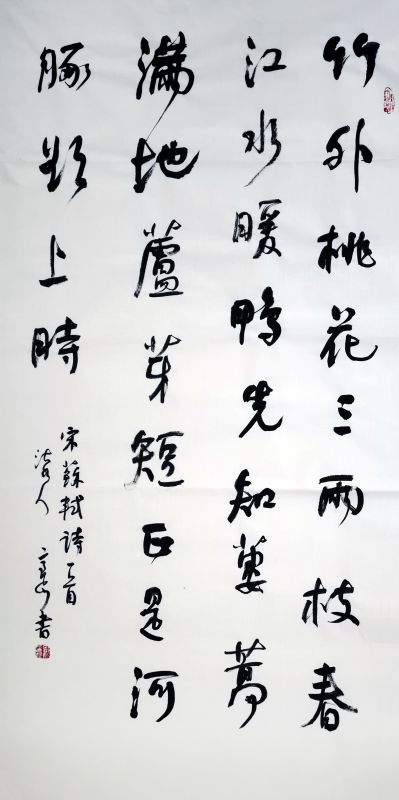 竹外桃花三兩枝春
江水暖鴨先知蔞蒿
滿地蘆芽短正是河
豚欲上時
宋蘇軾詩乙首
人 書